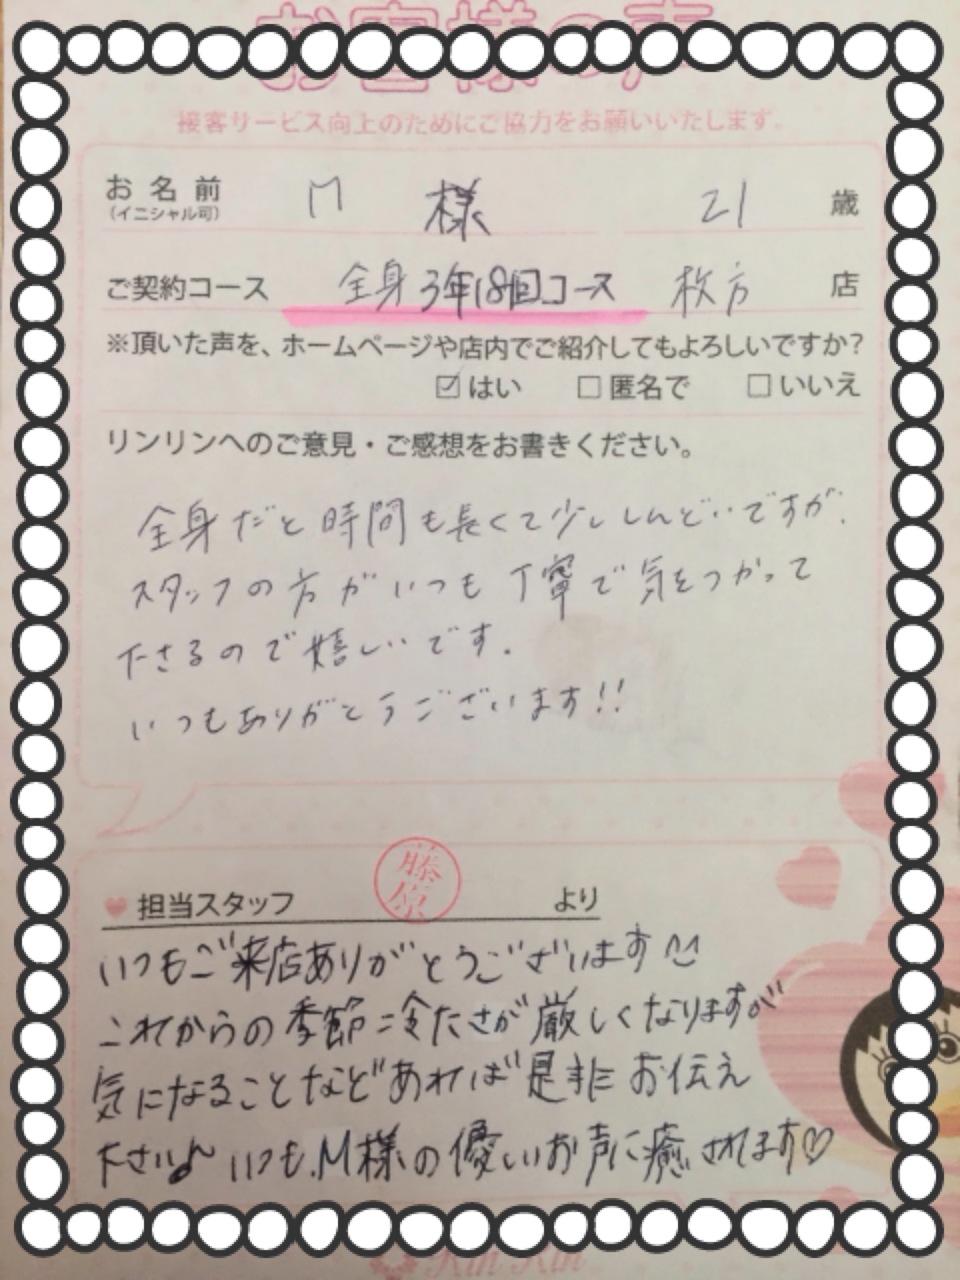 お客様の声
接客サービス向上のためにご協力をお願いいたします。
お名前 M 様 21 歳
(イニシャル可)
ご契約コース 全身3年18回コース 枚方 店
※頂いた声を、ホームページや店内でご紹介してもよろしいですか?
☑はい □匿名で □いいえ
リンリンへのご意見・ご感想をお書きください。
全身だと時間も長くて少ししんどいですが、
スタッフの方がいつも丁寧で気をつかって
下さるので嬉しいです.
いつもありがとうございます!!
♥担当スタッフ 藤原 より
いつもご来店ありがとうございます^^
これからの季節冷たさが厳しくなりますが
気になることなどあれば是非お伝え
下さい♪いつもM様の優しいお声に癒されてます♡
Rin Rin